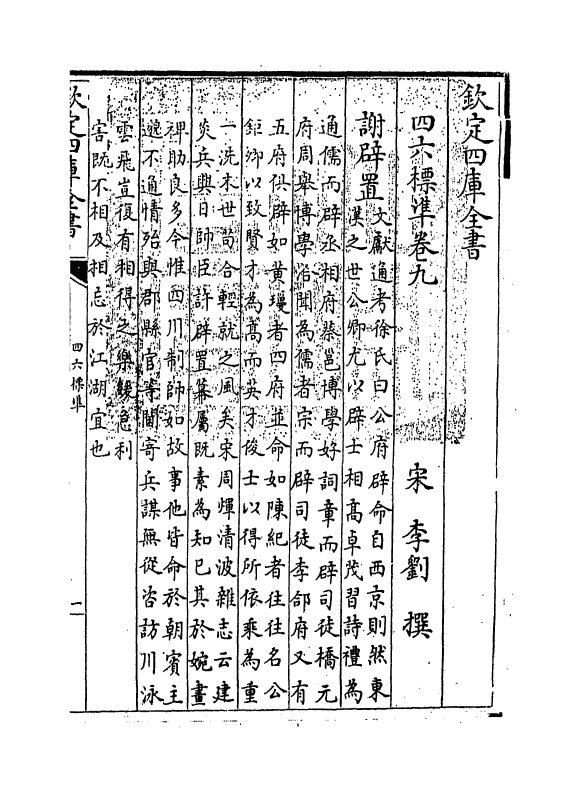 欽定四庫全書
四六標準卷九
宋 李劉 撰
謝辟置
文獻通考徐氏曰公府辟命自西京則然東
漢之世公卿尤以辟士相高卓茂習詩禮為
通儒而辟丞相府蔡邕博學好詞章而辟司徒橋元
府周舉博學洽聞為儒者宗而辟司徒李郃府又有
五府俱辟如黃瓊者四府並命如陳紀者往往名公
鉅卿以致賢才為高而英才俊士以得所依乘為重
一洗末世苟合輕就之風矣宋周煇清波雜志云建
炎兵興日帥臣許辟置幕屬既素為知已其於婉畫
裨助良多今惟四川制帥如故事他皆命於朝賓主
邈不通情殆與郡縣官等閫寄兵謀無從咨訪川泳
雲飛豈復有相得之樂緩急利
害既不相及相忘於江湖宜也
欽定四庫全書
四六標準
一